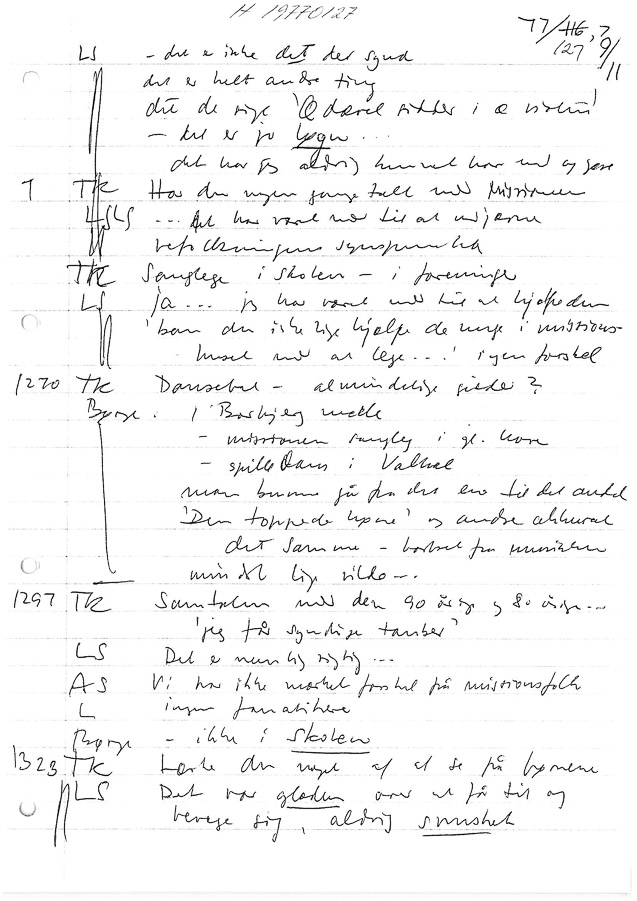 H 19770127
77/HG, 7
127 9/11
LS - det e ikke det der synd
det er helt andre ting
det de sige 'Æ dævel sidder i æ violin'
- det er jo løgn ...
det har jeg aldrig kunnet have med og gøre
T TK Har du nogen gange talt med Missionen
LS ... det har været med til at
befolkningens synspunkter
TK Sanglege i skolen - i foreninger
LS Ja ... jeg har været med til at hjælpe dem
'kan du ikke lige hjælpe de unge i missions-
huset med at lege ...' ingen forskel
1270 TK Dansebal - almindelige gilder?
Børge. I Borbjerg
- missionen sangleg i gl.
- spille dans i Valhal
man kunne gå fra det ene til det andet
'Den toppede høne' og andre akkurat
det samme - bortset fra musikken
mindst lige vilde ...
1297 TK Samtalen med den 90 årige og 80 årige ...
'jeg får syndige tanker'
LS Det e nemlig rigtig ...
AS Vi har ikke mærket forskel på missionsfolk
L ingen fanatikere
Børge - ikke i skolen
1323 TK Lærte du noget af at se på børnene
LS Det var glæden over at få til og
bevæge sig, aldrig